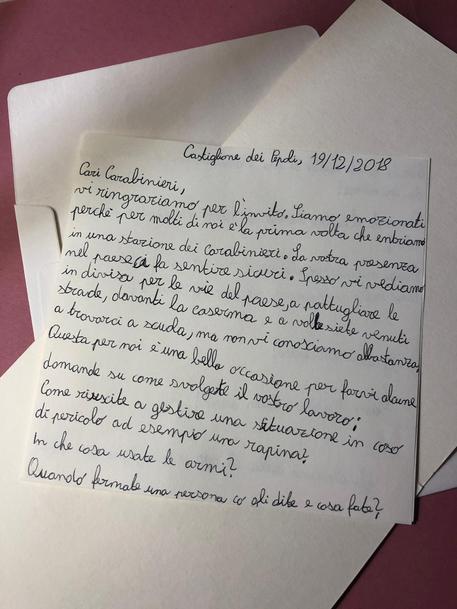 Castiglione dei Pepoli, 19/12/2018
Cari Carabinieri,
vi ringraziamo per l'invito. Siamo emozionati
perché per molti di noi è la prima volta che entriamo
in una stazione dei Carabinieri. La vostra presenza
nel paese ci fa sentire sicuri. Spesso vi vediamo
in divisa per le vie del paese, a pattugliare le
strade, davanti la caserma e a volte siete venuti
a trovarci a scuola, ma non vi conosciamo abbastanza,
Questa per noi è una bella occasione per farvi alcune
domande su come svolgete il vostro lavoro:
Come riuscite a gestire una situazione in caso
di pericolo ad esempio una rapina?
In che cosa usate le armi?
Quando fermate una persona co gli dite e cosa fate?